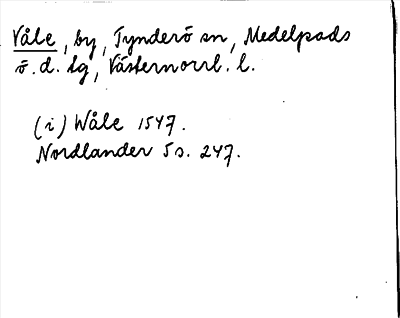 Våle, by, Tynderö sn, Medelpads
ö. d. tg, Västernorrl. l.
(i) Wåle 1547.
Nordlander 5 s. 247.